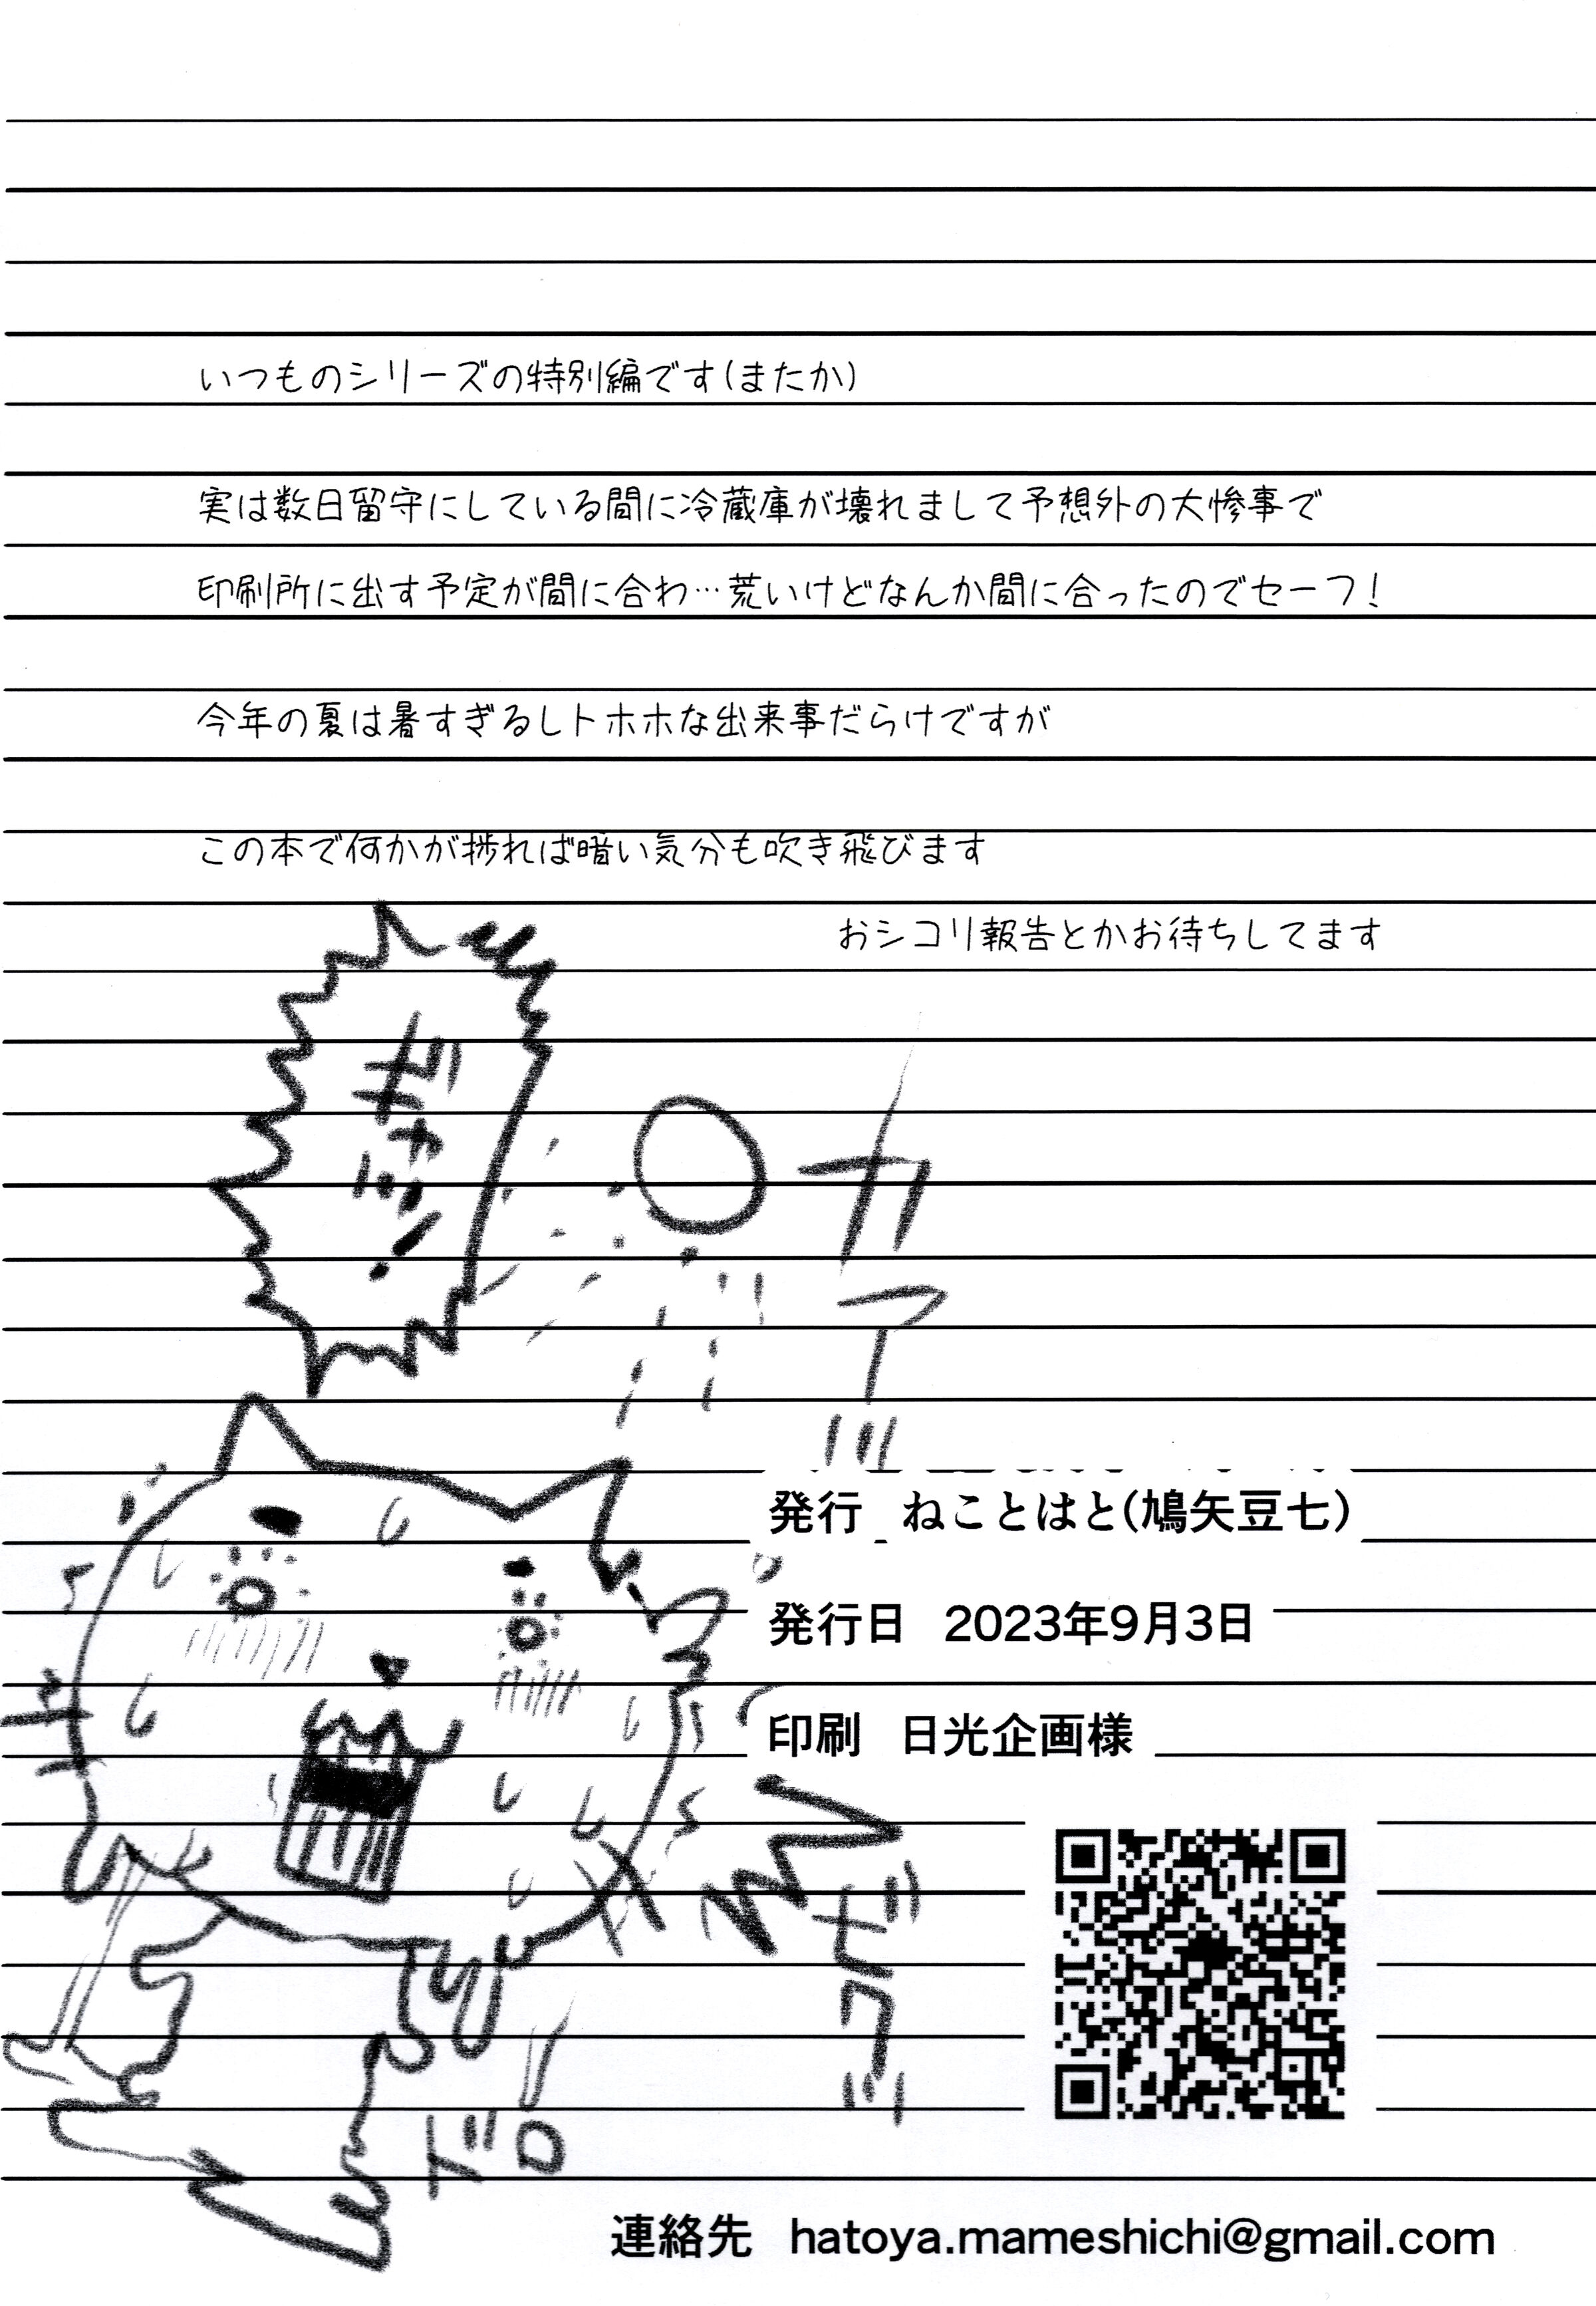 いつものシリーズの特別編です(またか)
実は数日留守にしている間に冷蔵庫が壊れまして予想外の大惨事で
印刷所に出す予定が間に合わ…荒いけどなんか間に合ったのでセーフ！
今年の夏は暑すぎるしトホホな出来事だらけですが
この本で何かが捗れば暗い気分も吹き飛びます
おシコリ報告とかお待ちしてます
カア
発行 ねことはと(鳩矢豆七)
発行日 2023年9月3日
印刷 日光企画様
ビクッ
ドロ
連絡先 hatoya.mameshichi@gmail.com